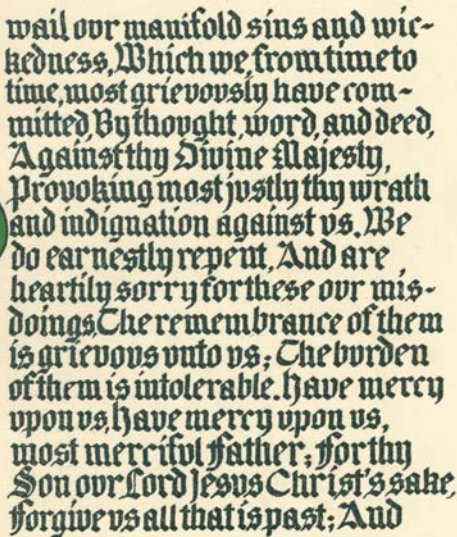 wail ovr manifold sins and wic-
kedness, Which we from time to
time, most grievovsly have com-
mitted, By thovght, word, and deed,
Against thy Divine Majesty,
Provoking most jvstly thy wrath
and indignation against vs. We
do earnestly repent, And are
heartily sorry for these ovr mis-
doings, The remembrance of them
is grievovs vnto vs; The bvrden
of them is intolerable. Have mercy
vpon vs, Have mercy vpon vs,
most mercifvl Father; For thy
Son ovr Lord Jesvs Christ's sake,
Forgive vs all that is past; And